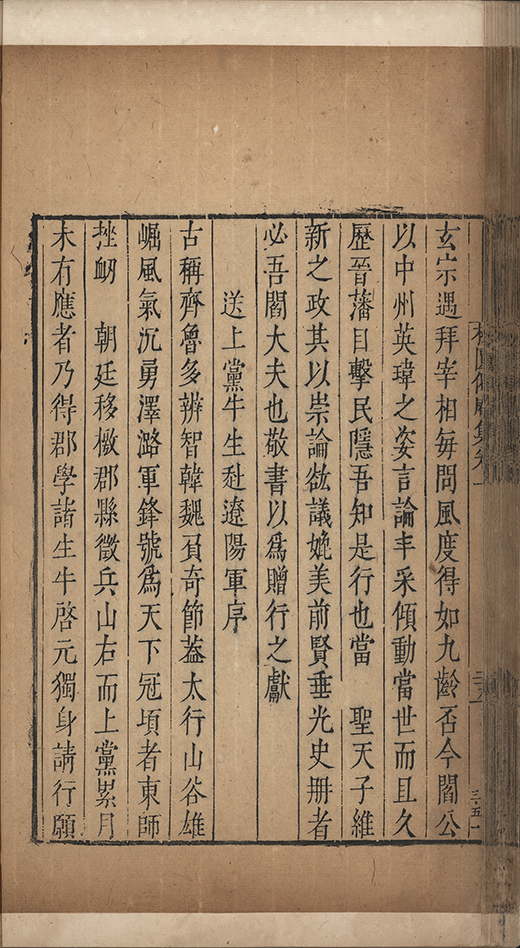 玄宗遇拜宰相每問風度得如九齡否今閻公
以中州英瑋之姿言論丰采傾動當世而且久
歷晉藩目擊民隱吾知是行也當　聖天子維
新之政其以崇論竑議媲美前賢垂光史册者
必吾閻大夫也敬書以爲贈行之獻
送上黨牛生赴遼陽軍序
古稱齊魯多辨智韓魏負奇節葢太行山谷雄
崛風氣沉勇澤潞軍鋒號爲天下冠頃者東師
挫衂　朝廷移檄郡縣徵兵山右而上黨累月
未有應者乃得郡學諸生牛啓元獨身請行願